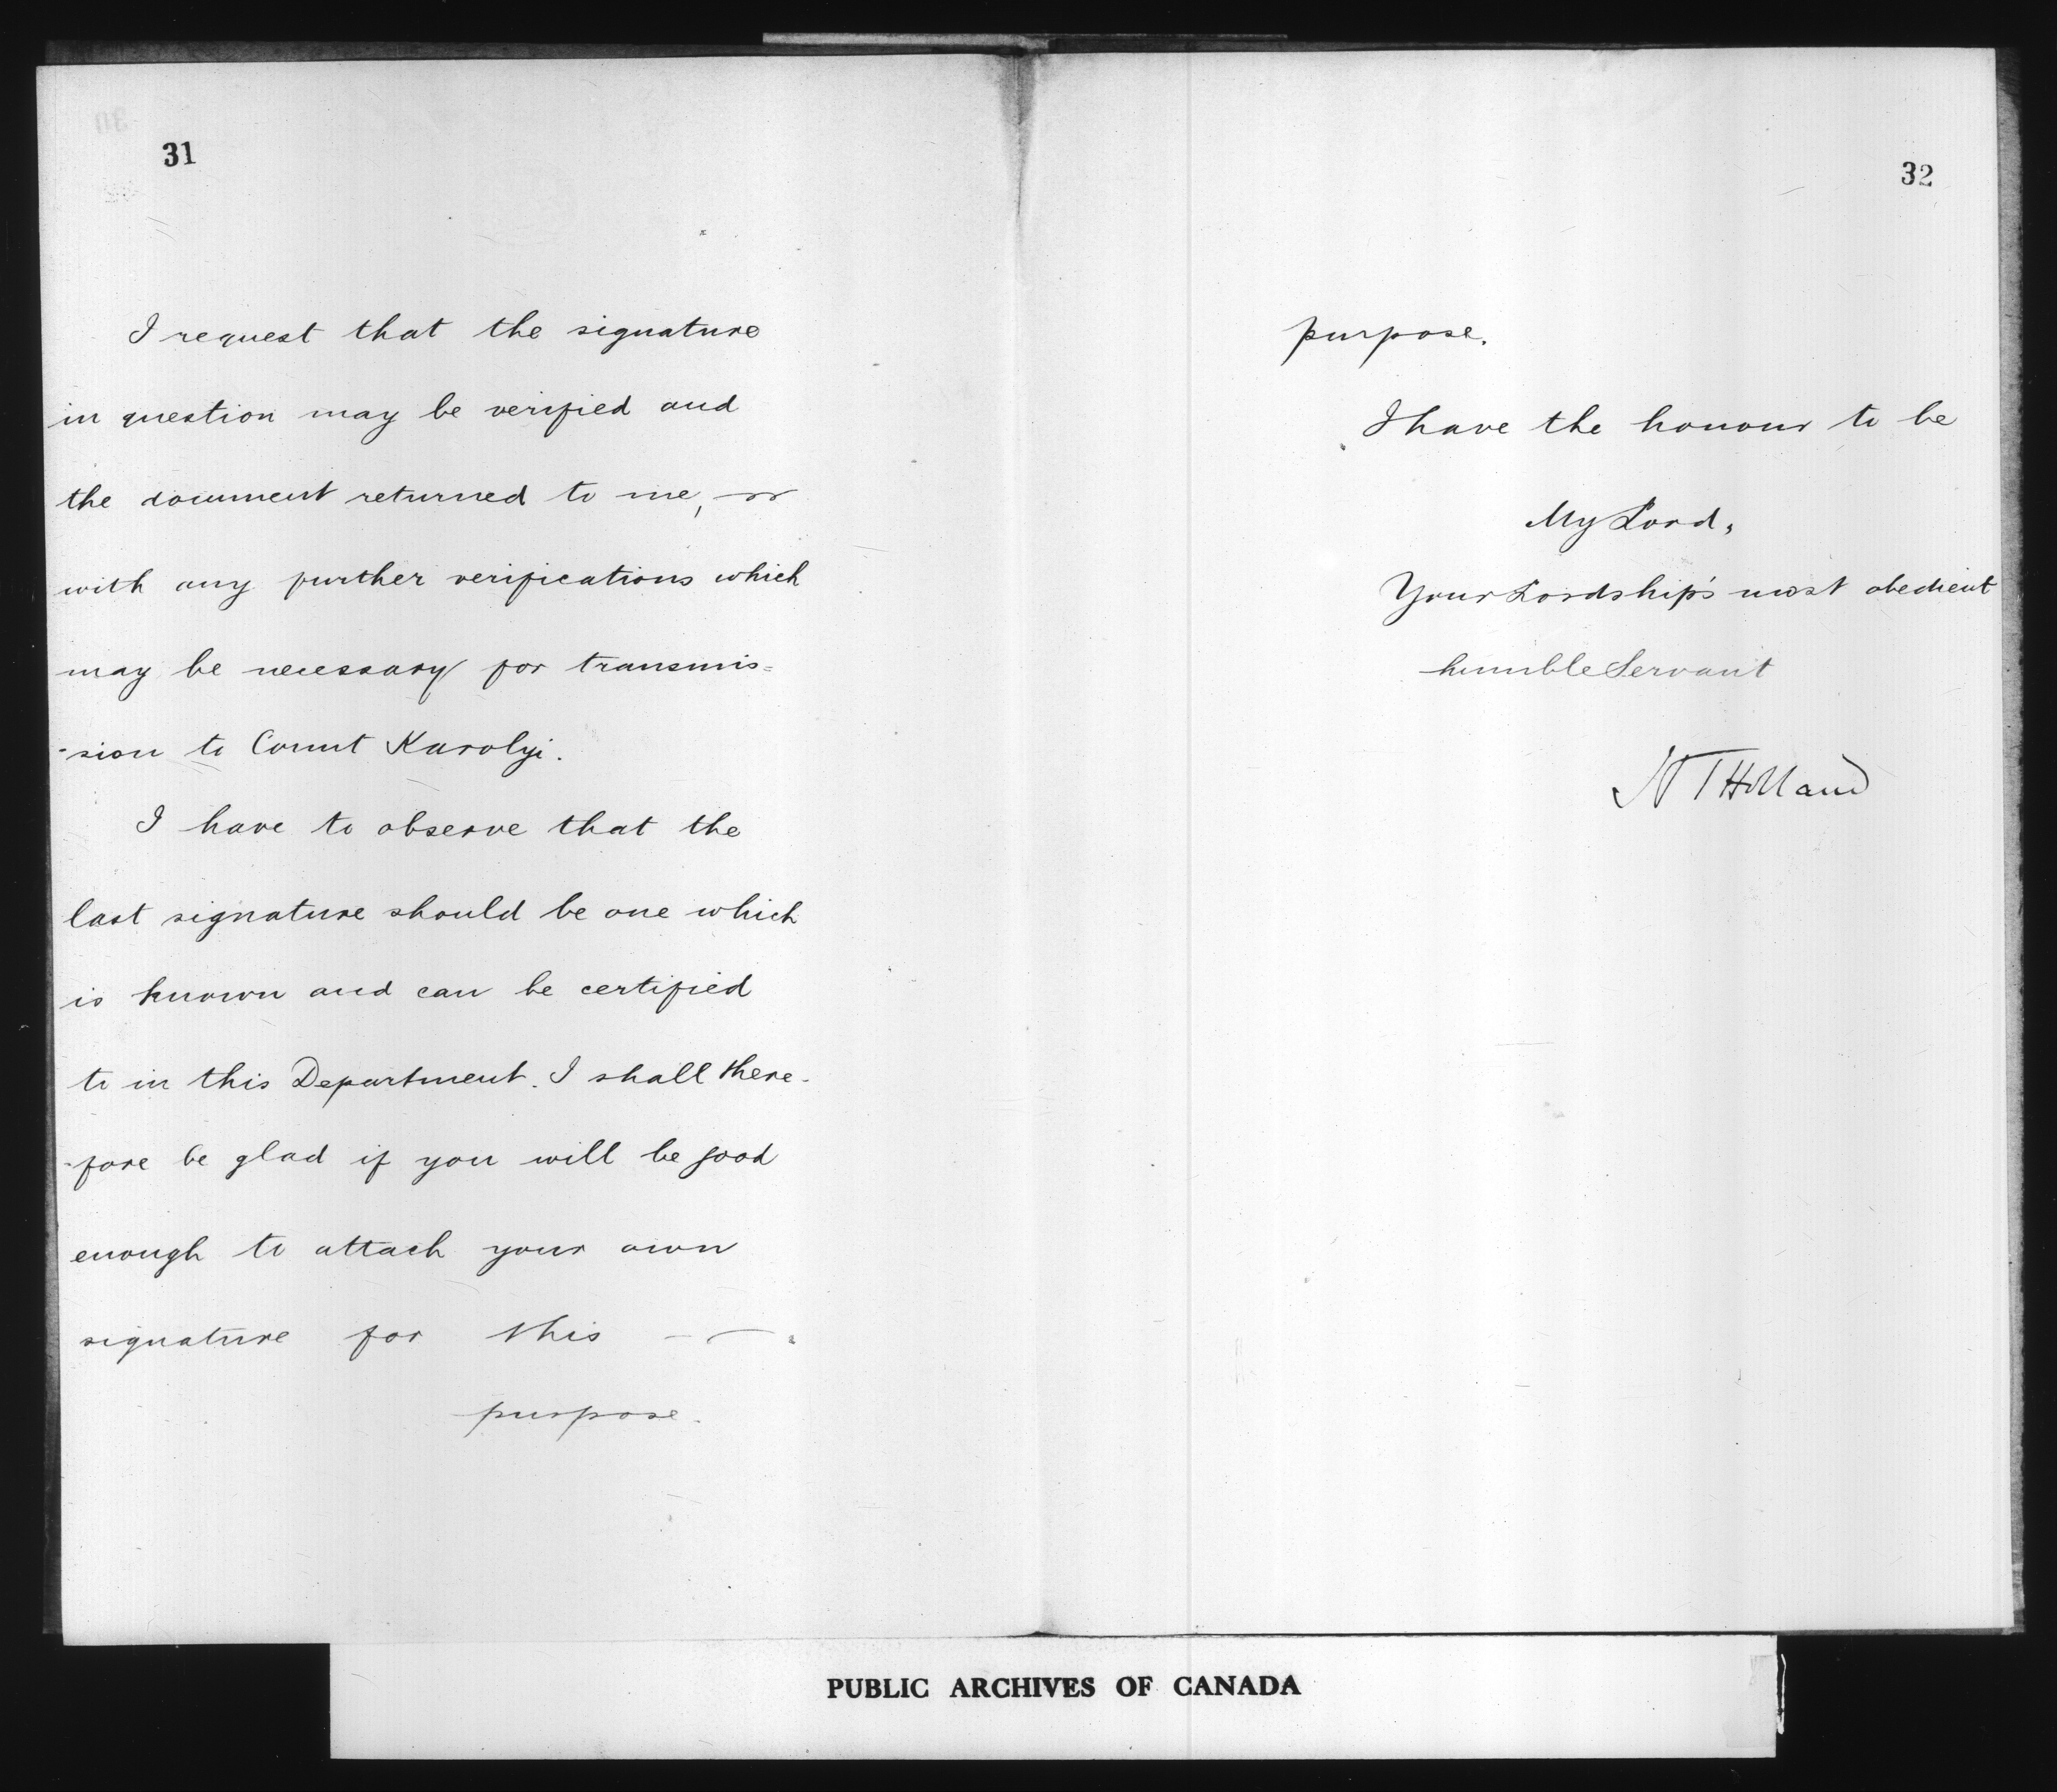 31
I request that the signature
in question may be verified and
the document returned to me,
with any further verifications which
may be necessary for transmis=
-sion to Count Karolyi.
I have to observe that the
last signature should be one which
is known and can be certified
to in this Department. I shall there-
-fore be glad if you will be good
enough to attach your own
signature for this
purpose.
32
purpose.
I have the honour to be
My Lord,
Your Lordship's most obedient
humble Servant
N T Holland
PUBLIC ARCHIVES OF CANADA